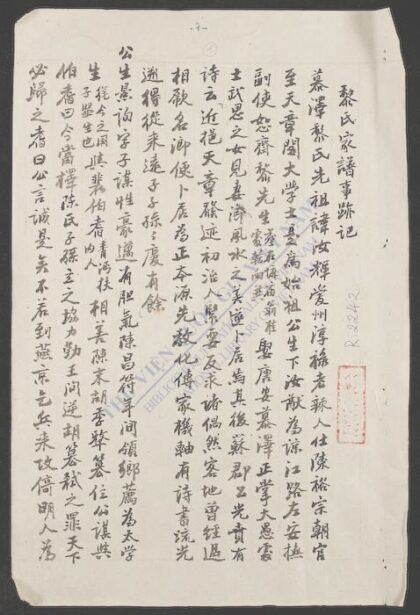 黎氏家譜事跡記
慕澤黎氏先祖諱汝輝愛州淳祿老辣人仕陳裕宗朝官
至天章閣大學士是為始祖公生下汝猷為諒江路左安撫
副使恕齋黎先生娶唐安慕澤正掌大愚
士武思之女見其風水之美卜居焉其後蘇郡公光賁有
詩云近挹天章發迹初治人緊要反求諸偶然客地曾經過
相厥名鄉便卜居為正本源先教化傳家機軸有詩書疏光
遡得從來遠子子孫孫慶有餘
公生景詢字子謀性豪邁有胆氣陳昌符年間領鄉薦為太學
生與裴伯耆相善陳末胡季犛篡位公謀與
伯耆曰今當擇陳氏子孫立之協力勤王問逆胡篡弒之罪天下
必歸之耆曰公言誠是矣不若到燕京乞兵來攻倘明人為
R.2242